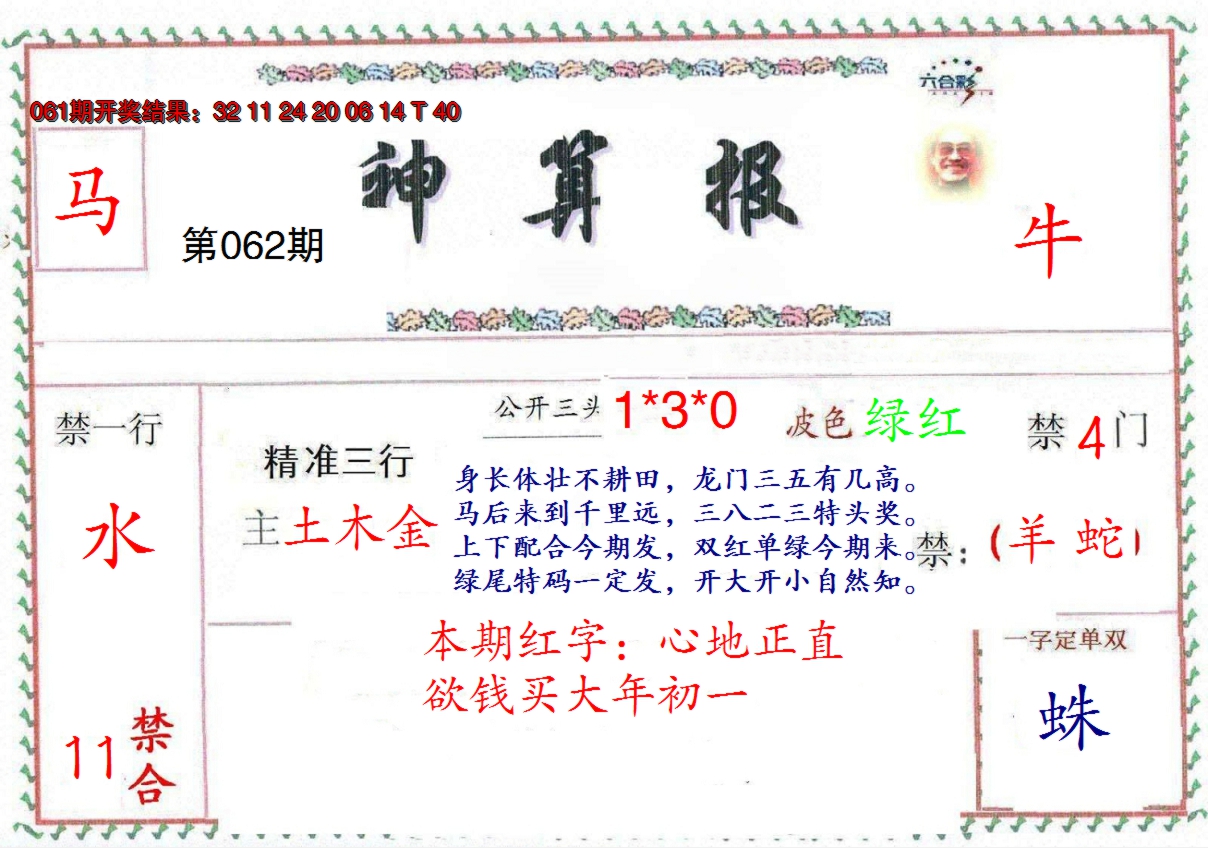 六合彩
061期开奖结果：32 11 24 20 06 14 T 40
神算报
马
第062期
牛
公开三头 1*3*0
波色 绿红
禁一行
禁 4 门
精准三行
水
主 土木金
身长体壮不耕田，龙门三五有几高。
马后来到千里远，三八二三特头奖。
上下配合今期发，双红单绿今期来。
绿尾特码一定发，开大开小自然知。
禁：（羊 蛇）
本期红字：心地正直
欲钱买大年初一
一字定单双
蛛
11 禁合